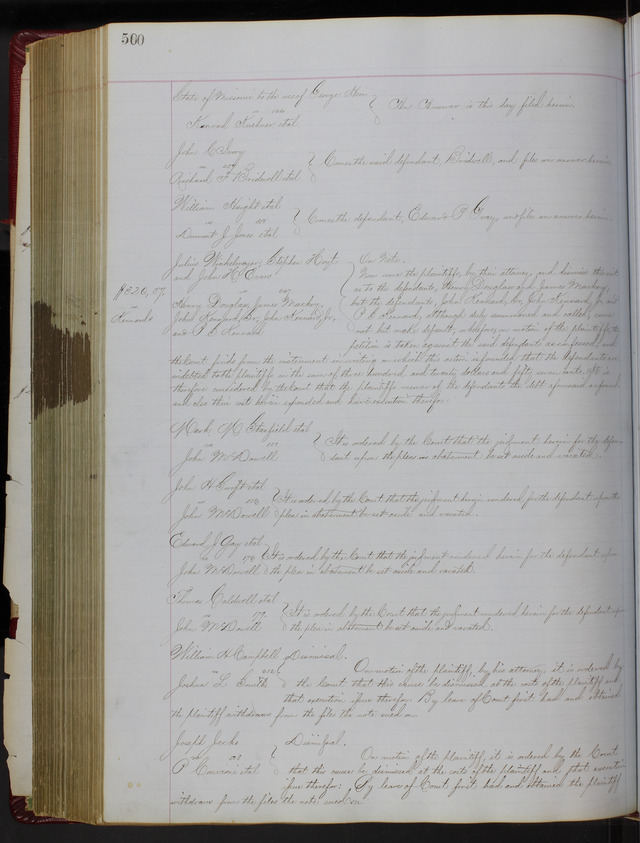 560
State of Missouri to the use of George
vs
Konrad et al
The Answer is this day filed herein.
John C Ivory
vs
Richard F Bridwell et al
Comes the said defendant, Bridwell, and files an answer herein.
William Haight et al
vs
Dumont J Jones et al
Comes the defendant, Edward P Gray, and files an answer herein.
Julius Winkelmeyer, Stephen Hoyt
and John H Evans
vs
Henry Douglas, James Mackey,
John Kennard, Sr., John Kennard, Jr,
and P C Kennard
$320.57.
Kennards
On Note.
Now come the plaintiffs, by their attorney, and dismiss this suit
as to the defendants, Henry Douglas and James Mackey,
but the defendants, John Kennard, Sr., John Kennard, Jr. and
P C Kennard, although duly summoned and called, come
not but make default, wherefore, on motion of the plaintiffs, the
petition is taken against the said defendants as confessed; and
the Court finds from the instrument in writing on which this action is founded, that the defendants are
indebted to the plaintiffs in the sum of three hundred and twenty dollars and fifty seven cents, it is
therefore considered by the Court that the plaintiffs recover of the defendants the debt aforesaid as found,
and also their costs herein expended and have execution therefor.
Mark M et al
vs
John McDowell
It is ordered by the Court that the judgment herein for the defen-
dant upon the plea in abatement be set aside and vacated.
John H Swift et al
vs
John McDowell
It is ordered by the Court that the judgment herein rendered for the defendant upon the
plea in abatement be set aside and vacated.
Edward J Gay et al
vs
John McDowell
It is ordered by the Court that the judgment rendered herein for the defendant upon
the plea in abatement be set aside and vacated.
Thomas Caldwell et al
vs
John McDowell
It is ordered by the Court that the judgment rendered herein for the defendant upon
the plea in abatement be set aside and vacated.
William H Campbell
vs
Joshua L Smith
Dismissal.
On motion of the plaintiff, by his attorney, it is ordered by
the Court that this cause be dismissed at the cost of the plaintiff and
that execution issue therefor. By leave of Court first had and obtained
the plaintiff withdraws from the files the note sued on.
Joseph Jecko
vs
P et al
Dismissal.
On motion of the plaintiff, it is ordered by the Court
that this cause be dismissed at the cost of the plaintiff and that execution
issue therefor: By leave of Court first had and obtained the plaintiff
withdraws from the files the note sued on.